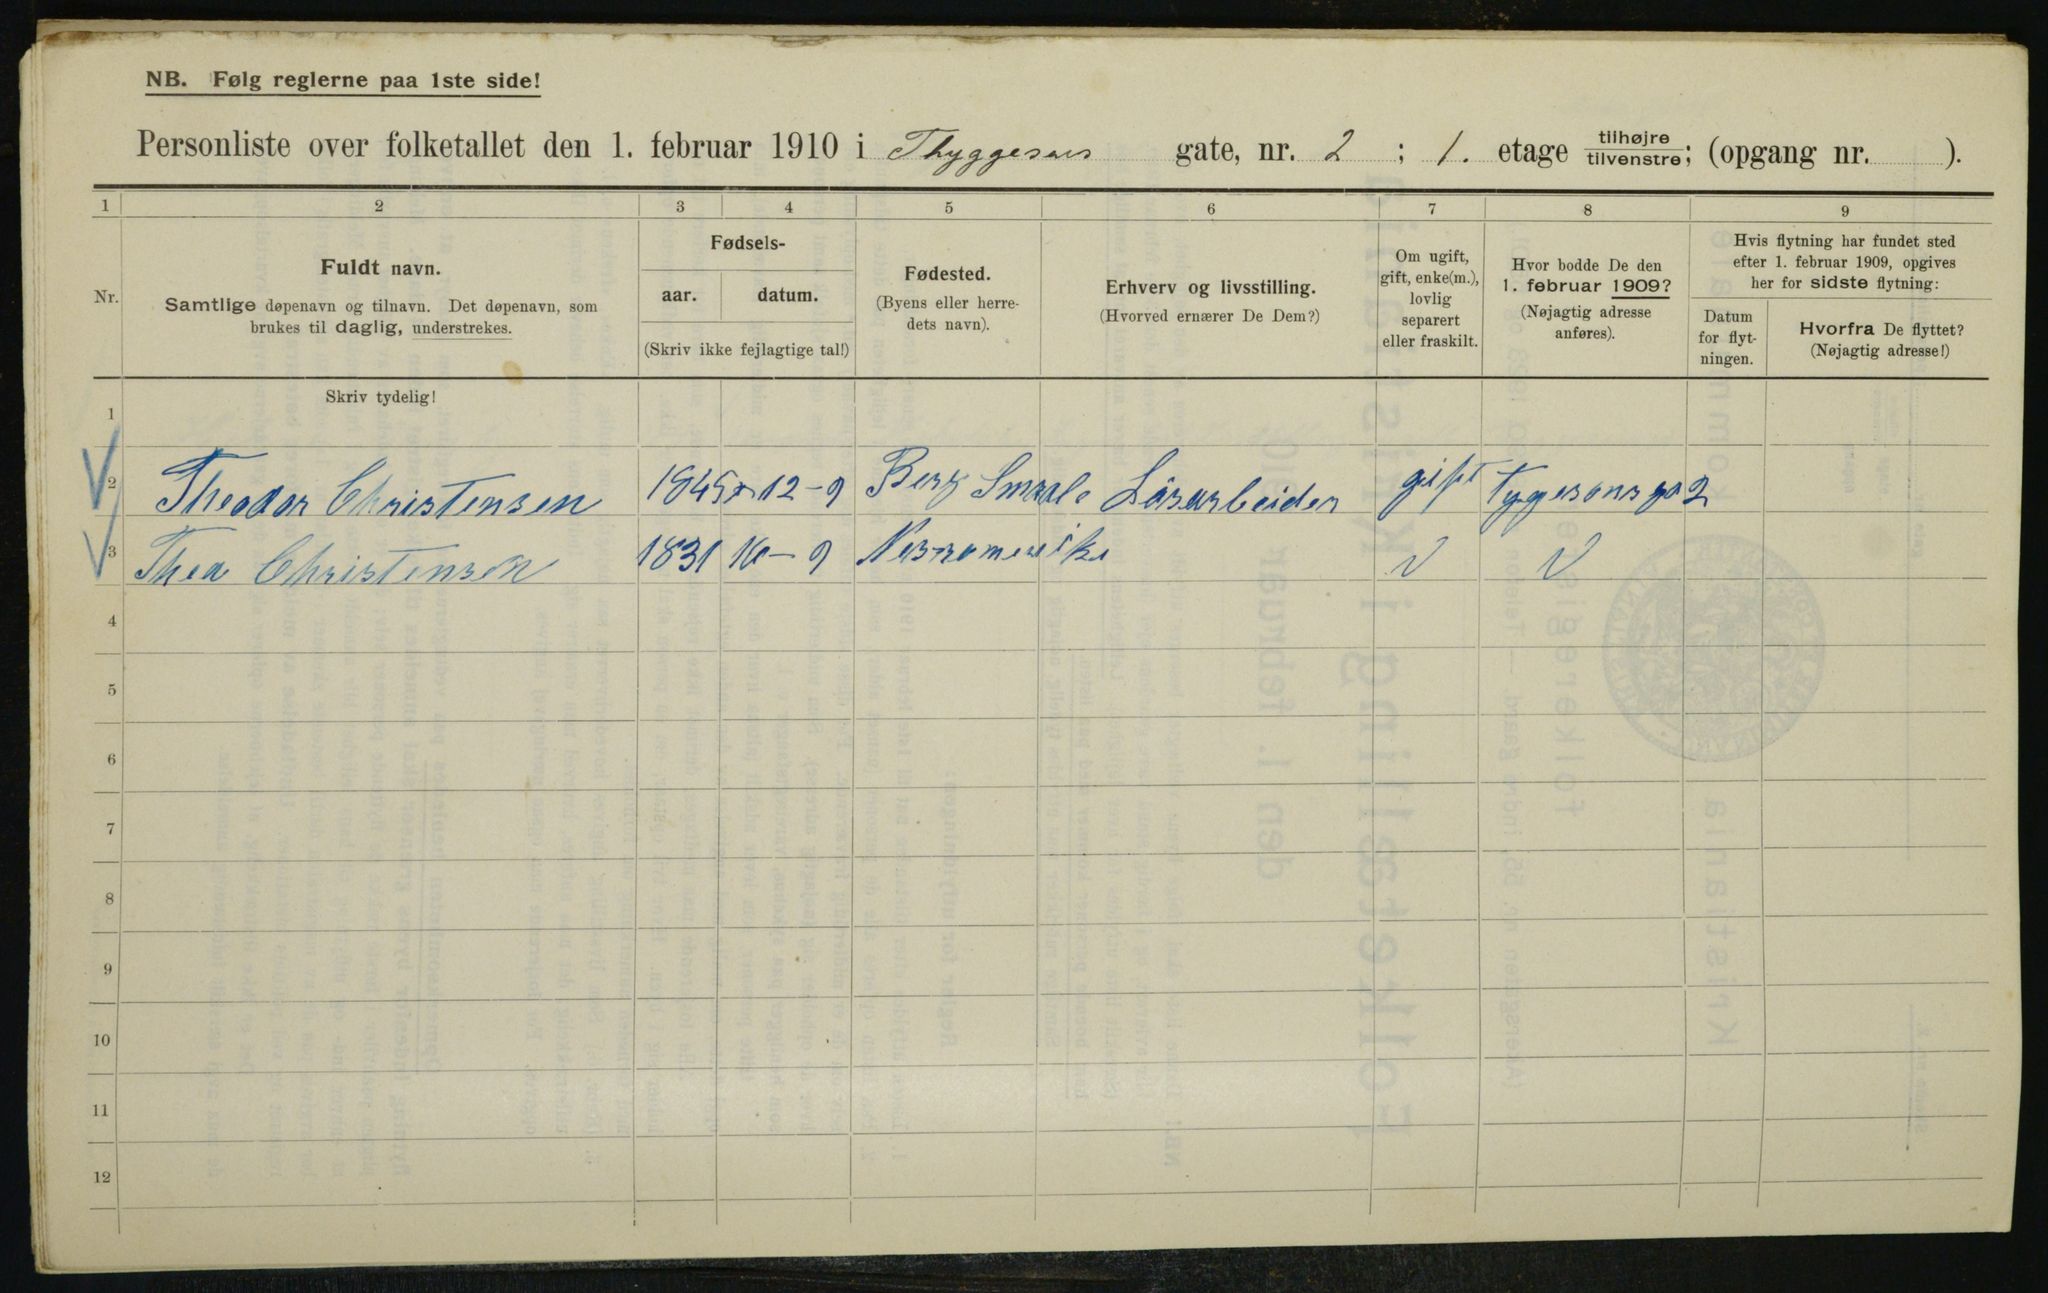 NB. Følg reglerne paa 1ste side!
Personliste over folketallet den 1. februar 1910 i Thyggesens gate, nr. 2 ; 1. etage tilhøjre tilvenstre; (opgang nr. ).
1 2 3 4 5 6 7 8 9
Nr.
Fuldt navn.
Samtlige døpenavn og tilnavn. Det døpenavn, som
brukes til daglig, understrekes.
Fødsels-
aar. datum.
(Skriv ikke fejlagtige tal!)
Fødested.
(Byens eller herre-
dets navn).
Erhverv og livsstilling.
(Hvorved ernærer De Dem?)
Om ugift,
gift, enke(m.),
lovlig
separert
eller fraskilt.
Hvor bodde De den
1. februar 1909?
(Nøjagtig adresse
anføres).
Hvis flytning har fundet sted
efter 1. februar 1909, opgives
her for sidste flytning:
Datum
for flyt-
ningen.
Hvorfra De flyttet?
(Nøjagtig adresse!)
Skriv tydelig!
1
2 Theodor Christensen 1845 12-9 Berg Smaale Løsarbeider gift Tygesens ga 2
3 Thea Christensen 1831 16-9 V V
4
5
6
7
8
9
10
11
12